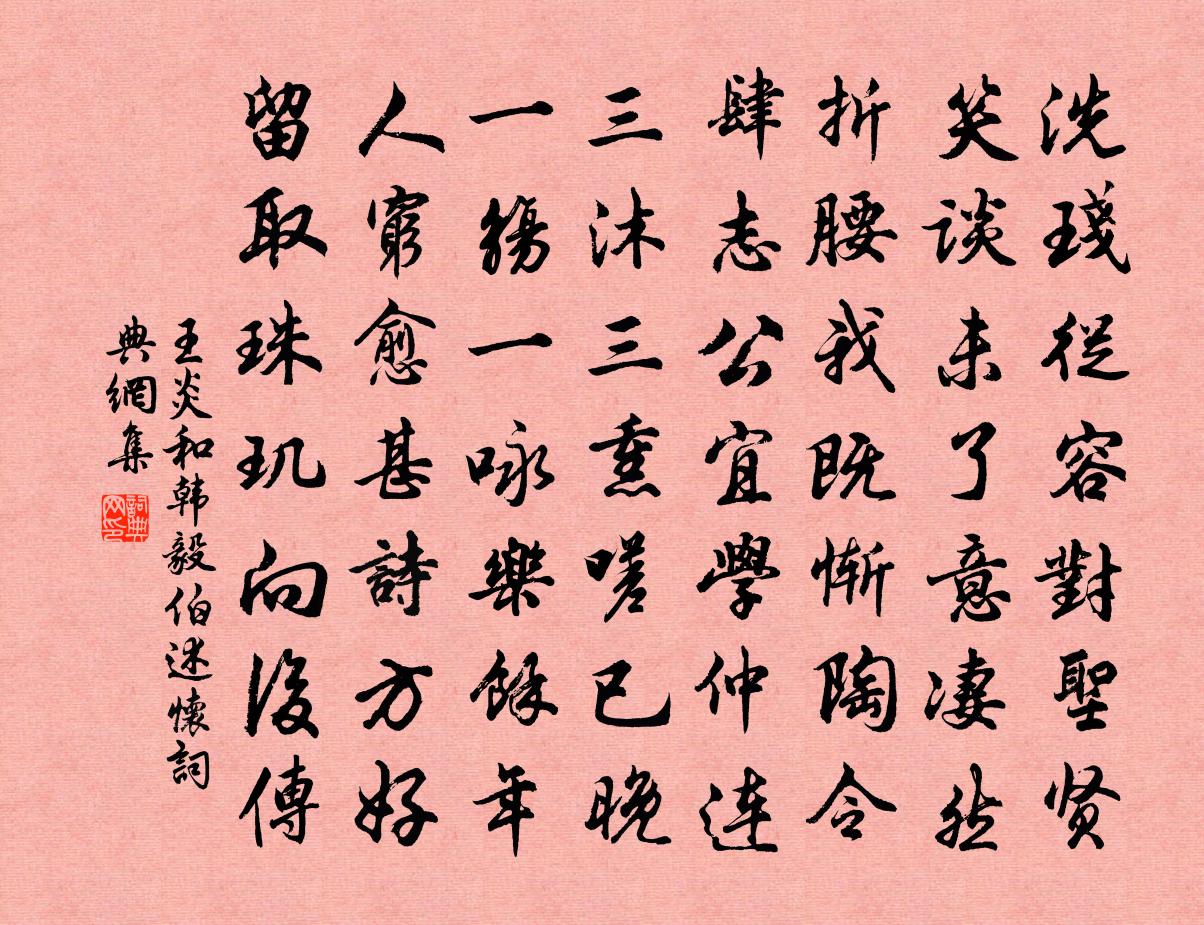 洗琖從容對聖贤
笑談未了意凄然
折腰我既慚陶令
肆志公宜學仲连
三沐三熏嗟已晚
一觴一咏樂餘年
人窮愈甚詩方好
留取珠玑向後傳
王炎和韩毅伯述懷詞
典網集
詞典
网印